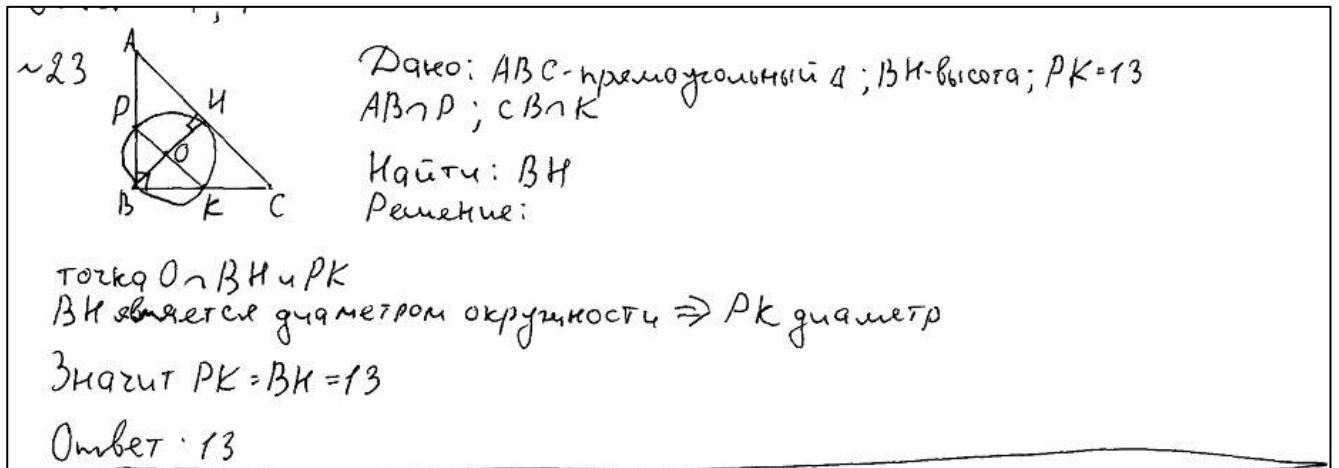 ~23
A
P
H
O
B
K
C
Дано: ABC-прямоугольный Δ; BH-высота; PK=13
AB∩P; CB∩K
Найти: BH
Решение:
точка O∩BH и PK
BH является диаметром окружности ⇒ PK диаметр
Значит PK=BH=13
Ответ: 13